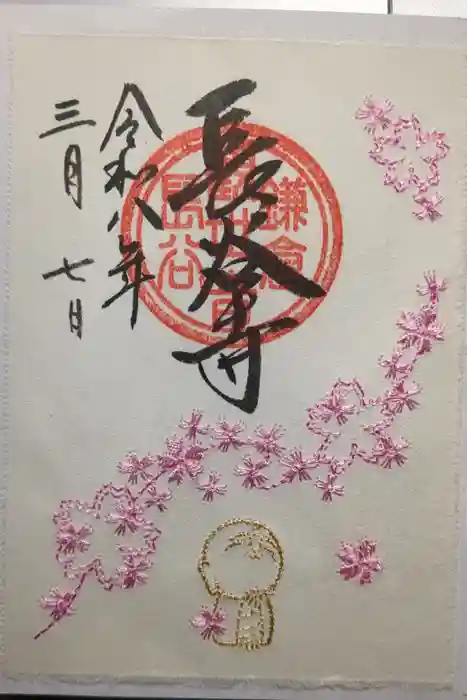 長谷寺
令和八年
三月 七日
鎌倉
長谷